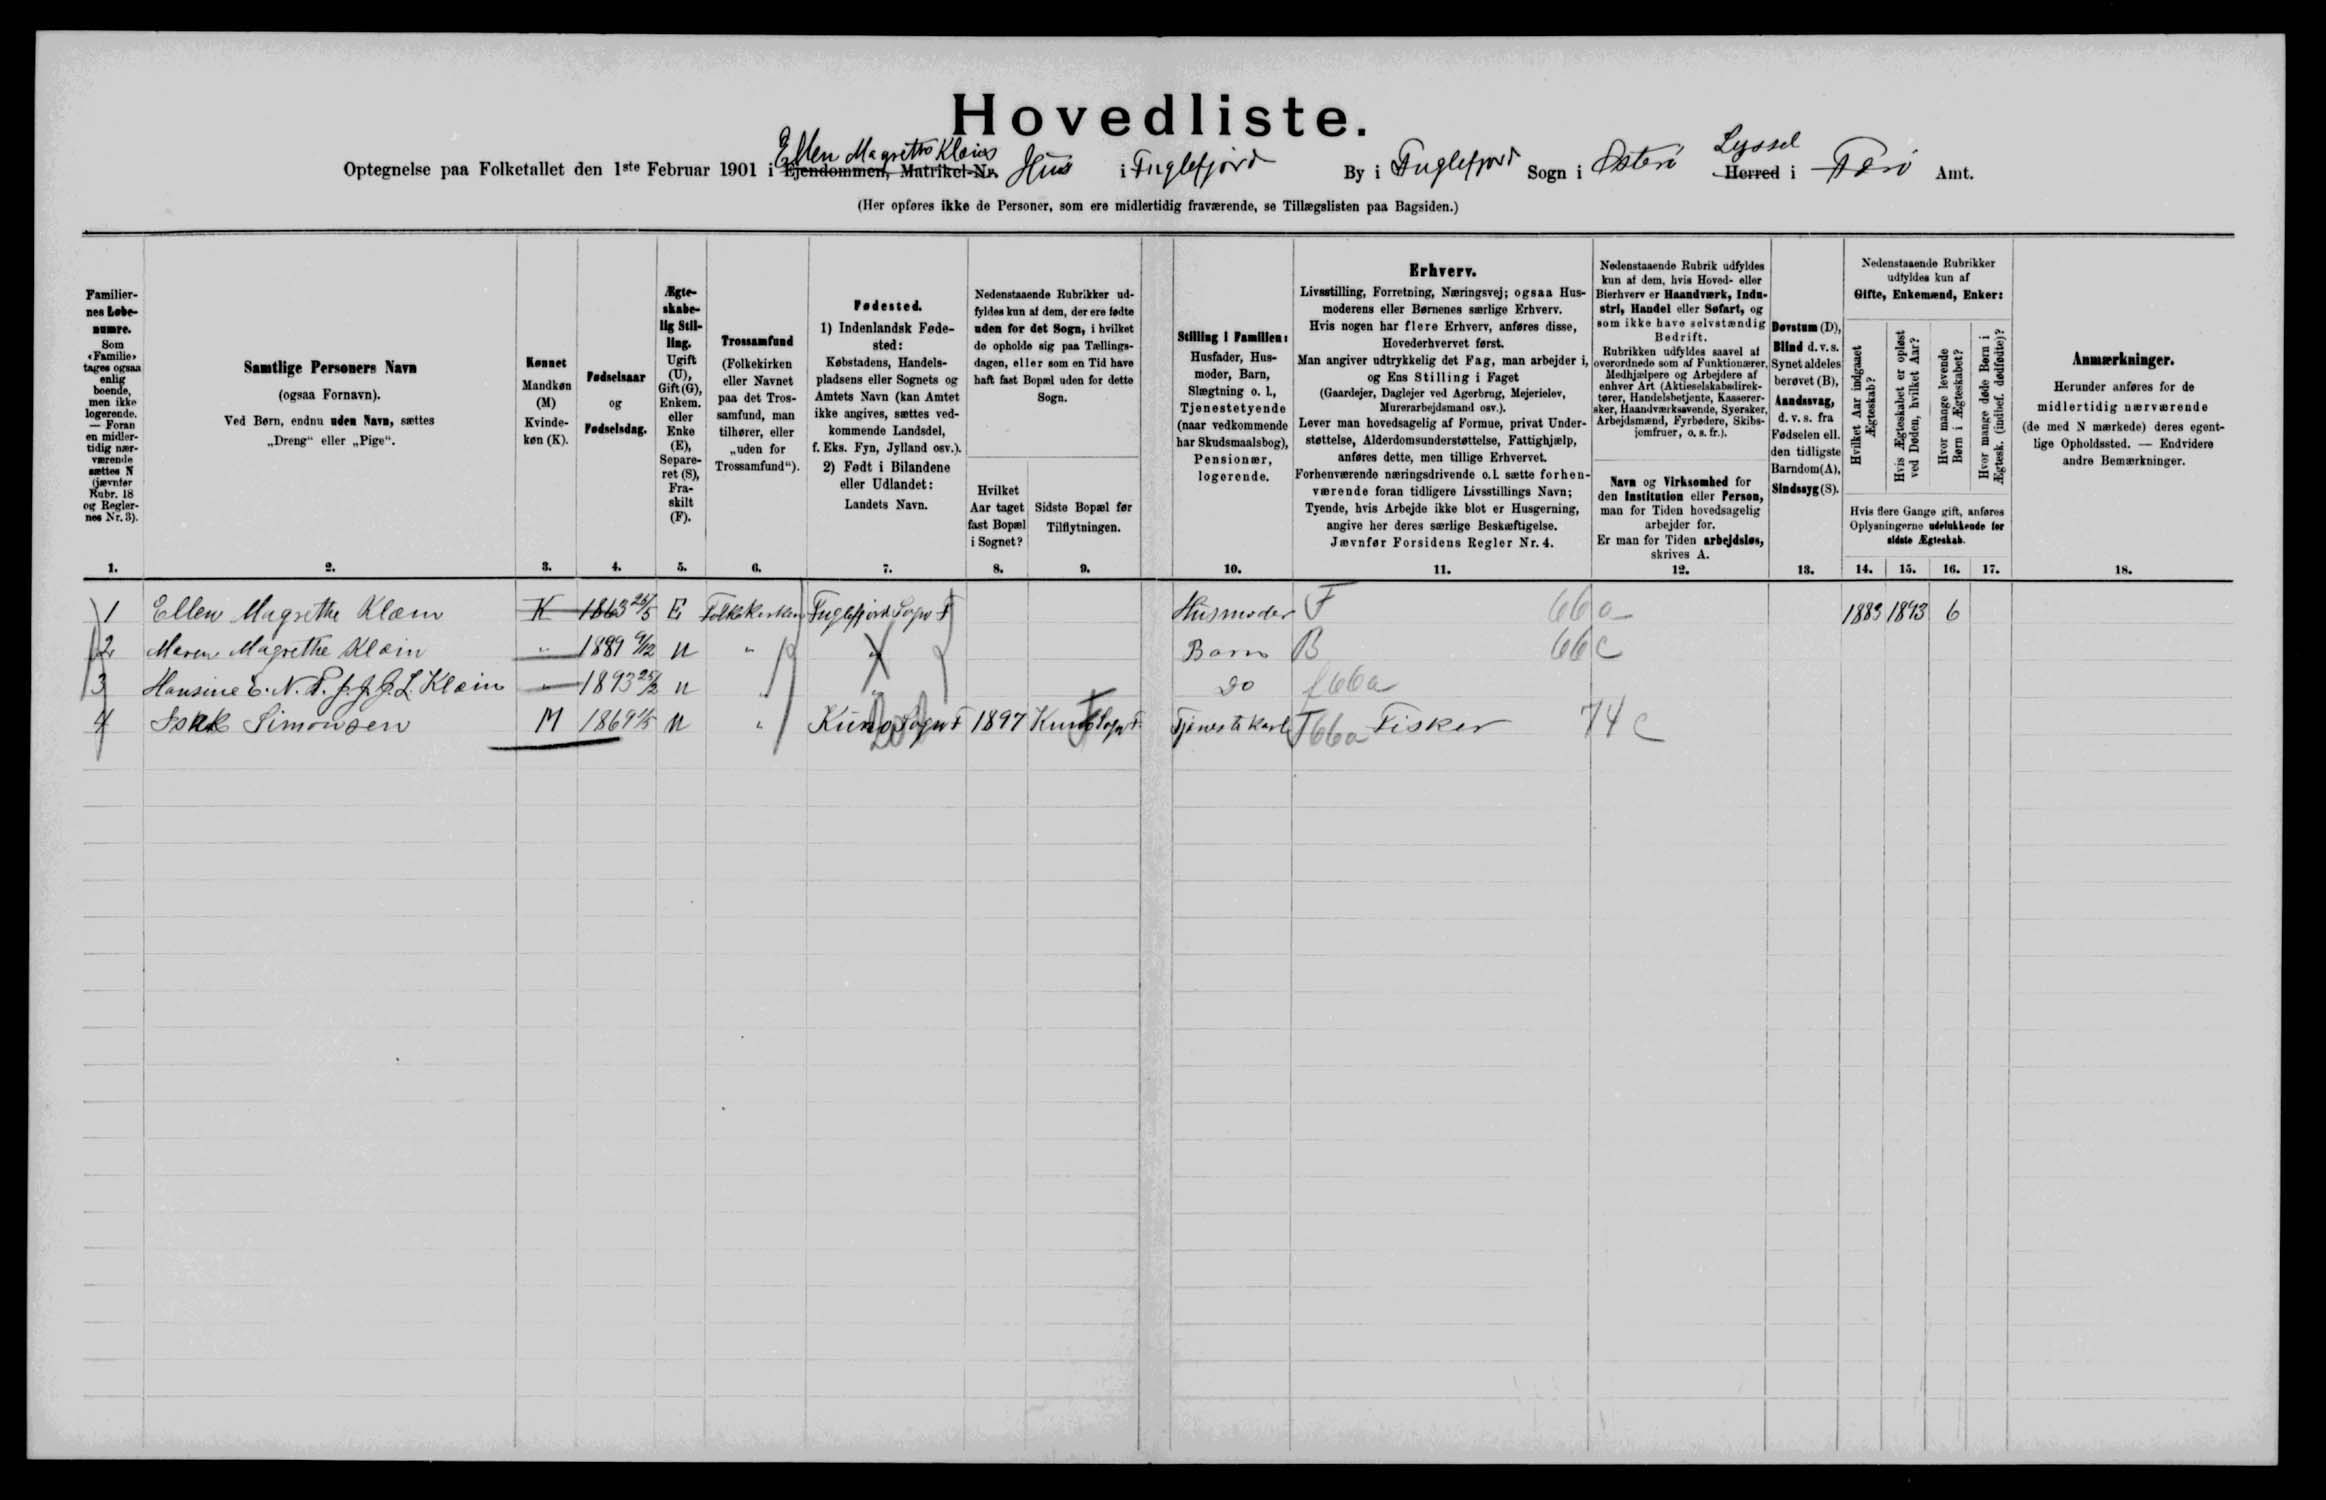 Hovedliste.
Optegnelse paa Folketallet den 1ste Februar 1901 i Ejendommen, Matrikel-Nr. Ellen Magrethe Klæins Hus i Fuglefjord By i Fuglefjord Sogn i Østerø Herred Syssel i Færø Amt.
(Her opføres ikke de Personer, som ere midlertidig fraværende, se Tillægslisten paa Bagsiden.)
Familiernes Løbenumre.
Som «Familie» tages ogsaa enlig boende, men ikke logerende. — Foran en midlertidig nærværende sættes N (jævnfør Rubr. 18 og Reglernes Nr. 3).
Samtlige Personers Navn
(ogsaa Fornavn).
Ved Børn, endnu uden Navn, sættes
„Dreng“ eller „Pige“.
Kønnet
Mandkøn (M)
Kvindekøn (K).
Fødselsaar
og
Fødselsdag.
Ægteskabelig Stilling.
Ugift (U), Gift (G), Enkem. eller Enke (E), Separeret (S), Fraskilt (F).
Trossamfund
(Folkekirken eller Navnet paa det Trossamfund, man tilhører, eller „uden for Trossamfund“).
Fødested.
1) Indenlandsk Fødested:
Købstadens, Handelspladsens eller Sognets og Amtets Navn (kan Amtet ikke angives, sættes vedkommende Landsdel, f. Eks. Fyn, Jylland osv.).
2) Født i Bilandene eller Udlandet:
Landets Navn.
Nedenstaaende Rubrikker udfyldes kun af dem, der ere fødte uden for det Sogn, i hvilket de opholde sig paa Tællingsdagen, eller som en Tid have haft fast Bopæl uden for dette Sogn.
Hvilket Aar taget fast Bopæl i Sognet?
Sidste Bopæl før Tilflytningen.
Stilling i Familien:
Husfader, Husmoder, Barn, Slægtning o. l., Tjenestetyende (naar vedkommende har Skudsmaalsbog), Pensionær, logerende.
Erhverv.
Livsstilling, Forretning, Næringsvej; ogsaa Husmoderens eller Børnenes særlige Erhverv.
Hvis nogen har flere Erhverv, anføres disse, Hovederhvervet først.
Man angiver udtrykkelig det Fag, man arbejder i, og Ens Stilling i Faget
(Gaardejer, Daglejer ved Agerbrug, Mejerielev, Murerarbejdsmand osv.).
Lever man hovedsagelig af Formue, privat Understøttelse, Alderdomsunderstøttelse, Fattighjælp, anføres dette, men tillige Erhvervet.
Forhenværende næringsdrivende o. l. sætte forhenværende foran tidligere Livsstillings Navn;
Tyende, hvis Arbejde ikke blot er Husgerning, angive her deres særlige Beskæftigelse.
Jævnfør Forsidens Regler Nr. 4.
Nedenstaaende Rubrik udfyldes kun af dem, hvis Hoved- eller Bierhverv er Haandværk, Industri, Handel eller Søfart, og som ikke have selvstændig Bedrift.
Rubrikken udfyldes saavel af overordnede som af Funktionærer, Medhjælpere og Arbejdere af enhver Art (Aktieselskabsdirektører, Handelsbetjente, Kassererer­sker, Haandværkssvende, Syersker, Arbejdsmænd, Fyrbødere, Skibsjomfruer, o. s. fr.).
Navn og Virksomhed for den Institution eller Person, man for Tiden hovedsagelig arbejder for.
Er man for Tiden arbejdsløs, skrives A.
Døvstum (D), Blind d. v. s. Synet aldeles berøvet (B), Aandssvag, d. v. s. fra Fødselen ell. den tidligste Barndom (A), Sindssyg (S).
Nedenstaaende Rubrikker udfyldes kun af
Gifte, Enkemænd, Enker:
Hvilket Aar indgaaet Ægteskab?
Hvis Ægteskabet er opløst ved Døden, hvilket Aar?
Hvor mange levende Børn i Ægteskabet?
Hvor mange døde Børn i Ægtesk. (indbef. dødfødte)?
Hvis flere Gange gift, anføres Oplysningerne udelukkende for sidste Ægteskab.
Anmærkninger.
Herunder anføres for de midlertidig nærværende (de med N mærkede) deres egentlige Opholdssted. — Endvidere andre Bemærkninger.
1. 2. 3. 4. 5. 6. 7. 8. 9. 10. 11. 12. 13. 14. 15. 16. 17. 18.
1 Ellen Magrethe Klæin K 1863 25/5 E Folkekirken Fuglefjord Sogn F Husmoder F 66a 1883 1893 6
2 Maren Magrethe Klæin " 1889 9/12 U " " Barn B 66c
3 Hansine E. N. P. J. J. J. L. Klæin " 1893 25/2 U " " Do f66a
4 Isak Simonsen M 1869 U " Kunø Sogn F 1897 Kunø Sogn F Tjenestekarl T66a Fisker 74c